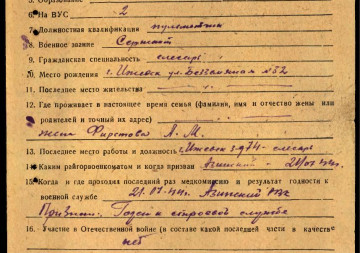 5. Образование
6. На ВУС 2
7. Должностная квалификация пулеметчик
8. Военное звание Сержант
9. Гражданская специальность слесарь
10. Место рождения г. Ижевск ул. № 52
11. Последнее место жительства
12. Где проживает в настоящее время семья (фамилия, имя и отчество жены или
родителей и точный их адрес)
жена А. М.
13. Последнее место работы и должность Ижевск з-д 74 - слесарь
14. Каким райгорвоенкоматом и когда призван Азинский -
15. Когда и где проходил последний раз медкомиссию и результат годности к
военной службе 21.07.41г. Азинский РВК
Признан: Годен к строевой службе
16. Участие в Отечественной войне (в составе какой последней части и в качестве
нет